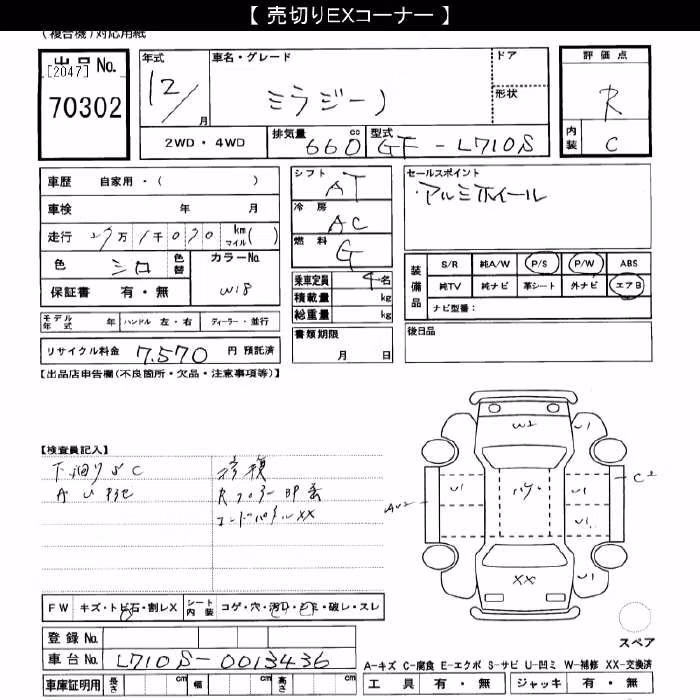 【 売切りEXコーナー 】
(複合機)対応用紙
出品 No.
[2047]
70302
年式 12/ 月
車名・グレード ミラジーノ
ドア
形状
評価点 R
内装 C
2WD・4WD
排気量 660 cc
型式 GF-L710S
車歴 自家用・( )
車検 年 月
走行 万 千 km マイル( )
色 シロ 色替
カラーNo. W18
保証書 有・無
シフト AT
冷房 AC
燃料 G
乗車定員 4名
積載量 kg
総重量 kg
書類期限 月 日
セールスポイント
アルミホイール
装備品
S/R 純A/W P/S P/W ABS
純TV 純ナビ 革シート 外ナビ エアB
ナビ型番：
後日品
モデル年式 年 ハンドル 左・右 ディーラー・並行
リサイクル料金 7.570 円 預託済
【出品店申告欄(不良箇所・欠品・注意事項等)】
【検査員記入】
下廻りSC
修複
コードパネルXX
W2
U1
U1
U1
U1
U1
C2
AU2
XX
FW キズ・トビ石・割レX
シート内装 コゲ・穴・汚レ・シミ・破レ・スレ
登録 No.
車台 No. L710S-0013436
車庫証明用 長さ cm 幅 cm 高さ cm
スペア
A-キズ C-腐食 E-エクボ S-サビ U-凹ミ W-補修 XX-交換済
工具 有・無 ジャッキ 有・無